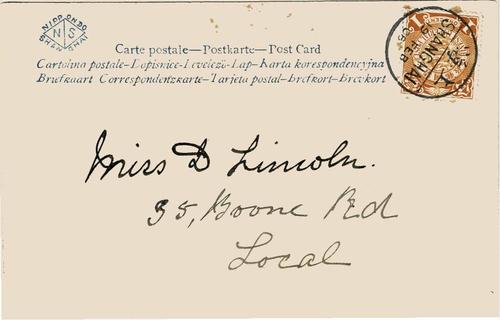 NIPPONDO
N S
SHANGHAI
Carte postale—Postkarte—Post Card
Cartolina postale—Dopisnice—Levelező-Lap—Karta korespondencyjna
Briefkaart Correspondenzkarte—Tarjeta postal—Brefkort—Brevkort
1
SHANGHAI
Miss D Lincoln.
35, Boone Rd
Local